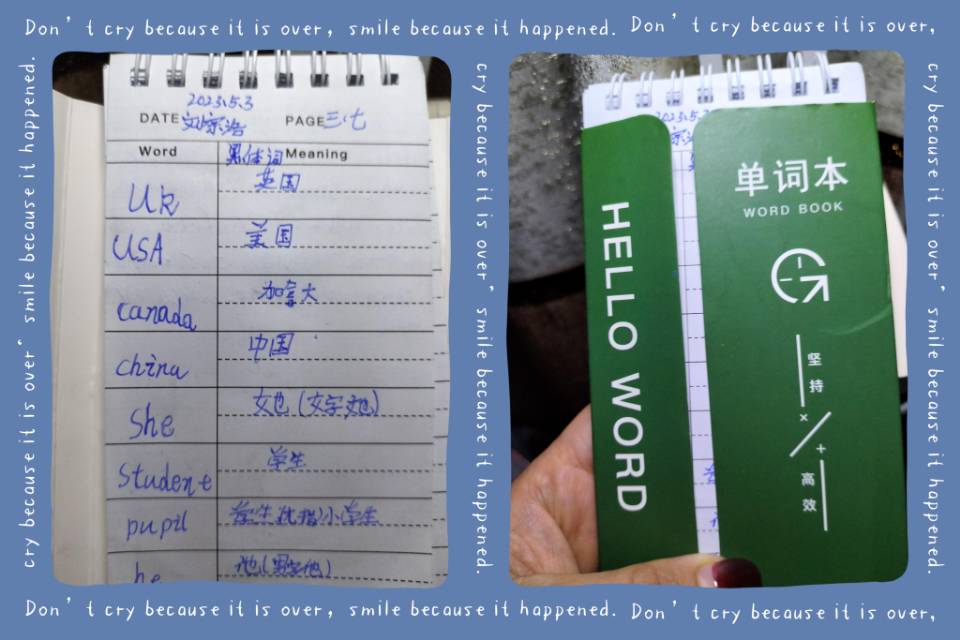 Don't cry because it is over, smile because it happened. Don't cry because it is over,
cry because it is over" smile because it happened.
2023.5.3
DATE
PAGE 三·七
Word 黑体词 Meaning
UK 英国
USA 美国
canada 加拿大
china 中国
She 她 (女字她)
Student 学生
pupil 学生 小学生
he 他(男字他)
cry because it is over" smile because it happened.
2023.5.3
单词本
WORD BOOK
HELLO WORD
坚持
×
+
高效
cry because it is over" smile because it happened.
Don't cry because it is over, smile because it happened. Don't cry because it is over,